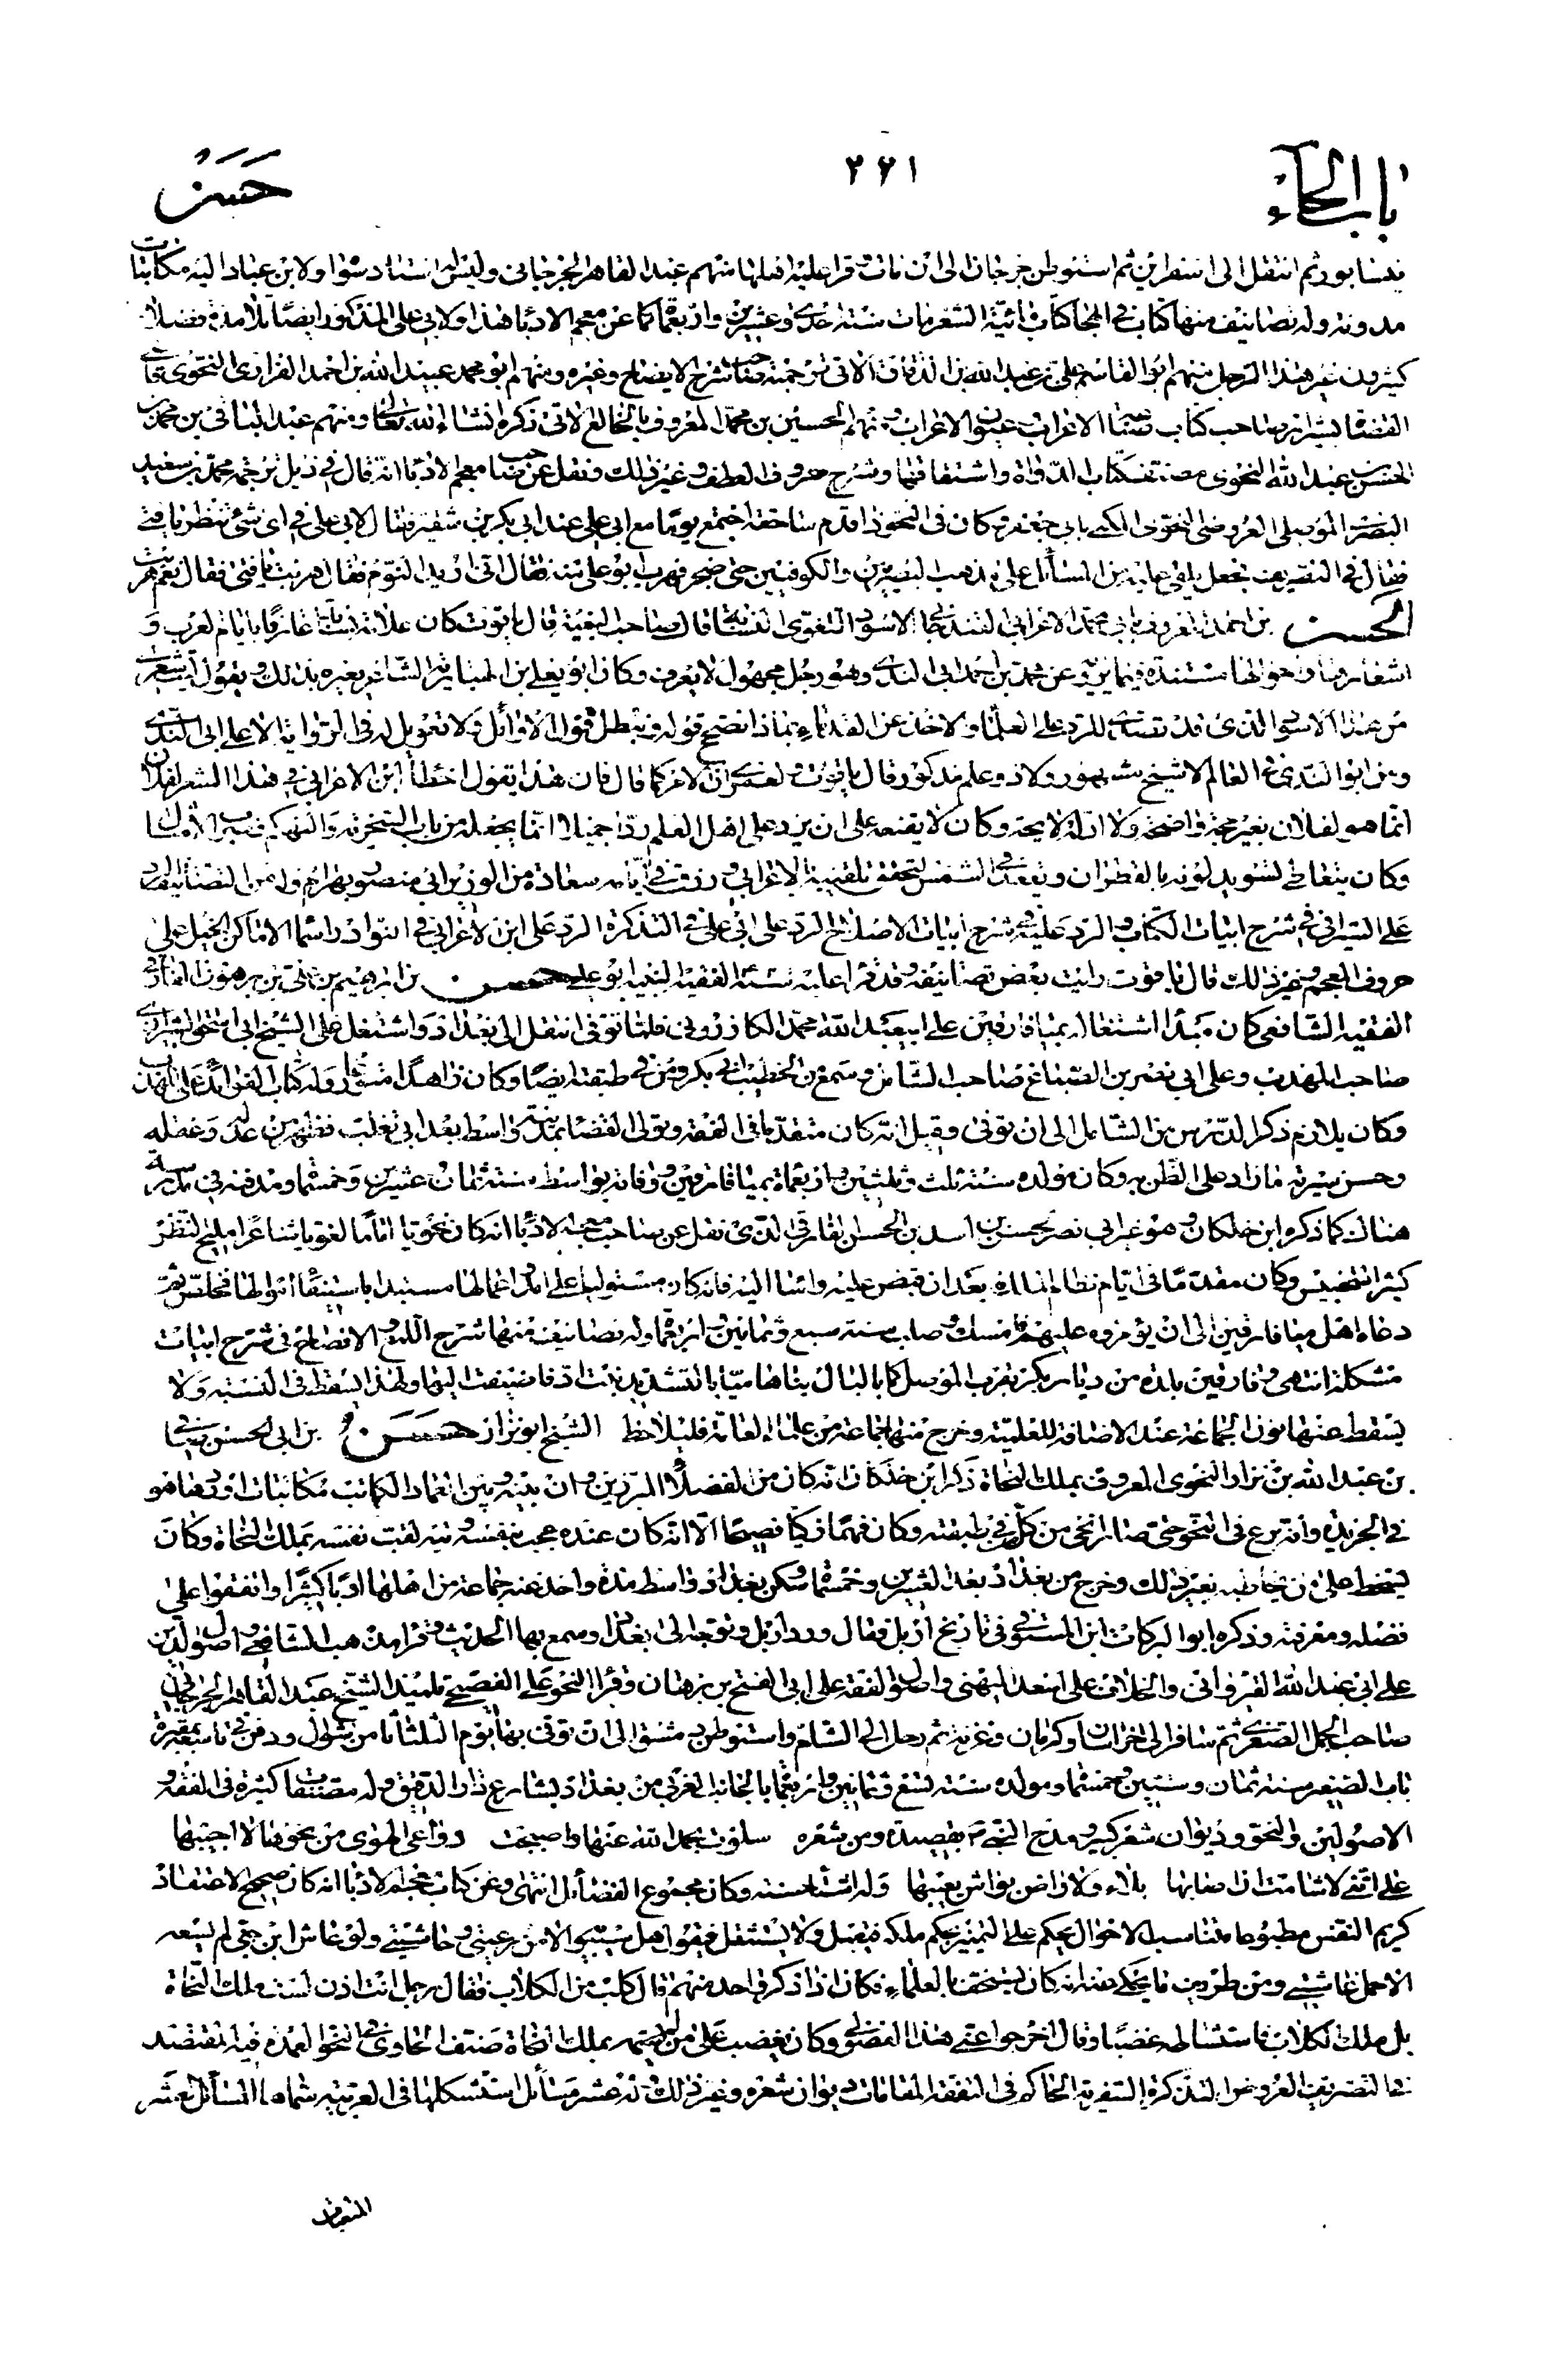 باب الحاء
٢٢١
حسن
نيسابور ثم انتقل الى اسفراين ثم استوطن جرجان الى ان مات قرا عليه اهلها منهم عبد القاهر الجرجانى وليس له استاد سواه ولابن عباد اليه مكاتبات
مدونة وله تصانيف منها كتاب فى الهجا كتاب الشعر مات سنة احدى وعشرين واربعمائة كما عن معجم الادبا هذا ولابى على المذكور ايضا تلامذة فضلاء
كثيرون غير هذا الرجل منهم ابو القاسم على بن عبد الله بن الدقاق الاتى ترجمته صاحب شرح الايضاح وغيره ومنهم ابو محمد عبيد الله بن احمد الفزارى النحوى قاضى
القضاة بشيراز صاحب كتاب صناعة الاعراب عيون الاعراب ومنهم الحسين بن محمد المعروف بالخالع الاتى ذكره انشاء الله تعالى ومنهم عبد الباقى بن محمد بن
الحسن بن عبد الله النحوى مصنف كتاب الدواة واشتقاقها وشرح حروف العطف وغير ذلك ونقل عن صاحب معجم الادبا انه قال فى ذيل ترجمة محمد بن سعيد
البصير الموصلى العروضى النحوى المكنى بابى جعفر كان فى النحو ذا قدم سابقة اجتمع يوما مع ابى على عند ابى بكر بن شقير فقال لابى على فى اى شئ تنظر يا فتى
فقال فى التصريف فجعل يلقى عليه من المسائل على مذهب البصريين والكوفيين حتى ضجر فهرب ابو على منه فقال انى اريد النوم فقال هربت يا فتى فقال نعم هربت
الحسن بن احمد المعروف بابى محمد الاعرابى الغندجانى الاسود اللغوى النسابة قال صاحب البغية قال ياقوت كان علامة نسابة عارفا بايام العرب و
اشعارها واحوالها مستنده فيما يرويه عن محمد بن احمد ابى الندى وهو رجل مجهول لا يعرف وكان ابو يعلى بن الهبارية الشاعر يعيره بذلك ويقول ليت شعرى
من هذا الاسود الذى قد تصدى للرد على العلماء والاخذ عن القدماء بماذا نصحح قوله ونبطل قول الاوائل ولا تعويل له فى الرواية الا على ابى الندى
ومن ابو الندى فى العالم لا شيخ مشهور ولا ذو علم مذكور قال ياقوت لعمرى ان الامر كما قال فان هذا يقول اخطأ ابن الاعرابى فى هذا الشعر لفلان
انما هو لفلان بغير حجة واضحة ولا ادلة لايحة وكان لا يقنعه على ان يرد على اهل العلم ردا جميلا انما يجعله من باب السخرية والتهكم وضرب الامثال
وكان يتعاطى تسويد لونه بالقطران ويقعد فى الشمس ليتحقق تلقيبه بالاعرابى ورزق فى ايامه سعادة من الوزير ابى منصور بهرام وله من التصانيف الرد
على السيرافى فى شرح ابيات الكتاب والرد عليه فى شرح ابيات الاصلاح الرد على ابى على فى التذكرة الرد على ابن الاعرابى فى النوادر اسماء الاماكن الخيل على
حروف المعجم وغير ذلك قال ياقوت رايت بعض تصانيفه وقد قرا عليه سنة الفقيه النبيه ابو على حسن بن ابرهيم بن على بن برهون الفارقى
الفقيه الشافعى كان مبدا اشتغاله بميافارقين على ابى عبد الله محمد الكازرونى فلما توفى انتقل الى بغداد واشتغل على الشيخ ابى اسحق الشيرازى
صاحب المهذب وعلى ابى نصر بن الصباغ صاحب الشامل وسمع من الخطيب ابى بكر ومن فى طبقته ايضا وكان زاهدا متورعا وله كتاب الفوائد على المهذب
وكان يلازم ذكر الدرس من الشامل الى ان توفى وقيل انه كان متقدما فى الفقه وتولى القضا بمدينة واسط بعد ابى تغلب فظهر من عدله وعقله
وحسن سيرته ما زاد على الظن به وكان مولده سنة ثلث وثلثين واربعمائة بميافارقين ووفاته بواسط سنة ثمان وعشرين وخمسمائة ومدفنه فى مدرسة
هناك كما ذكره ابن خلكان وهو غير ابى نصر حسن بن اسد بن الحسن الفارقى الذى نقل عن صاحب معجم الادبا انه كان نحويا اماما لغويا شاعرا مليح النظم
كثير التجنيس وكان مقدما فى ايام نظام الملك بعد ان قبض عليه واساء اليه فانه كان مستوليا على امد واعمالها مستبدا باستيفاء اموالها فخلص ثم
دعاه اهل ميافارقين الى ان يؤمروه عليهم فامسك وصلب سنة سبع وثمانين واربعمائة وله تصانيف منها شرح اللمع والافصاح فى شرح ابيات
مشكلة انتهى وفارقين بلدة من ديار بكر بقرب الموصل كما بالبال بناها ميا بالتشديد بنت اد فاضيفت اليها ولهذا يسقط فى النسبة ولا
يسقط عنها نون الجماعة عند الاضافة للعلمية وخرج منها جماعة من علماء العامة فليلاحظ الشيخ ابو نزار حسن بن ابى الحسن صافى
بن عبد الله بن نزار النحوى المعروف بملك النحاة ذكر ابن خلكان انه كان من الفضلاء المبرزين وان بينه وبين العماد الكاتب مكاتبات اوردها هو
فى الخريدة وانه برع فى النحو حتى صار انحى من كل من فى طبقته وكان فهما ذكيا فصيحا الا انه كان عنده عجب بنفسه وتيه لقب نفسه بملك النحاة وكان
يسخط على من يخاطبه بغير ذلك وخرج من بغداد بعد العشرين وخمسمائة وسكن بغداد واسط مدة واخذ عنه جماعة من اهلها ادبا كثيرا واتفقوا على
فضله ومعرفته وذكره ابو البركات ابن المستوفى فى تاريخ اربل فقال ورد اربل وتوجه الى بغداد وسمع بها الحديث وقرا مذهب الشافعى واصول الدين
على ابى عبد الله القيروانى والخلاف على اسعد الميهنى واصول الفقه على ابى الفتح بن برهان وقرا النحو على الفصيحى تلميذ الشيخ عبد القاهر الجرجانى
صاحب الجمل الصغرى ثم سافر الى خراسان وكرمان وغزنة ثم رحل الى الشام واستوطن دمشق الى ان توفى بها يوم الثلثا ثامن شوال ودفن فى تاسعه بمقبرة
باب الصغير سنة ثمان وستين وخمسمائة ومولده سنة تسع وثمانين واربعمائة بالجانب الغربى من بغداد بشارع دار الدقيق وله مصنفات كثيرة فى الفقه و
الاصولين والنحو وديوان شعر كبير ومدح النبى ص بقصيدة ومن شعره سلوت بحمد الله عنها واصبحت دواعى الهوى من نحوها لا اجيبها
على اننى لا شامت ان اصابها بلاء ولا راض بواش يعيبها وله اشياء حسنة وكان مجموع الفضائل انتهى وعن كتاب معجم الادبا انه كان صحيح الاعتقاد
كريم النفس مطبوعا متناسب الاحوال يحكم على اهل التميز بحكم ملكه فيقبل ولا يستثقل فيقول هل سيبويه الا من رعيتى وحاشيتى ولو عاش ابن جنى لم يسعه
الا حمل غاشيتى ومن طريف ما يحكى عنه انه كان يستخف بالعلماء فكان اذا ذكر واحد منهم قال كلب من الكلاب فقال رجل انت اذن لست ملك النحاة
بل ملك الكلاب فاستشاط غضبا وقال اخرجوا عنى هذا الفضولى وكان يغضب على من لم يسمه بملك النحاة صنف الحاوى فى النحو العمدة فيه المقتصد
فى التصريف العروض التذكرة السفرية الحاكم فى الفقه المقامات ديوان شعره وغير ذلك وله عشر مسائل استشكلها فى العربية سماها المسائل العشر
المتعبات